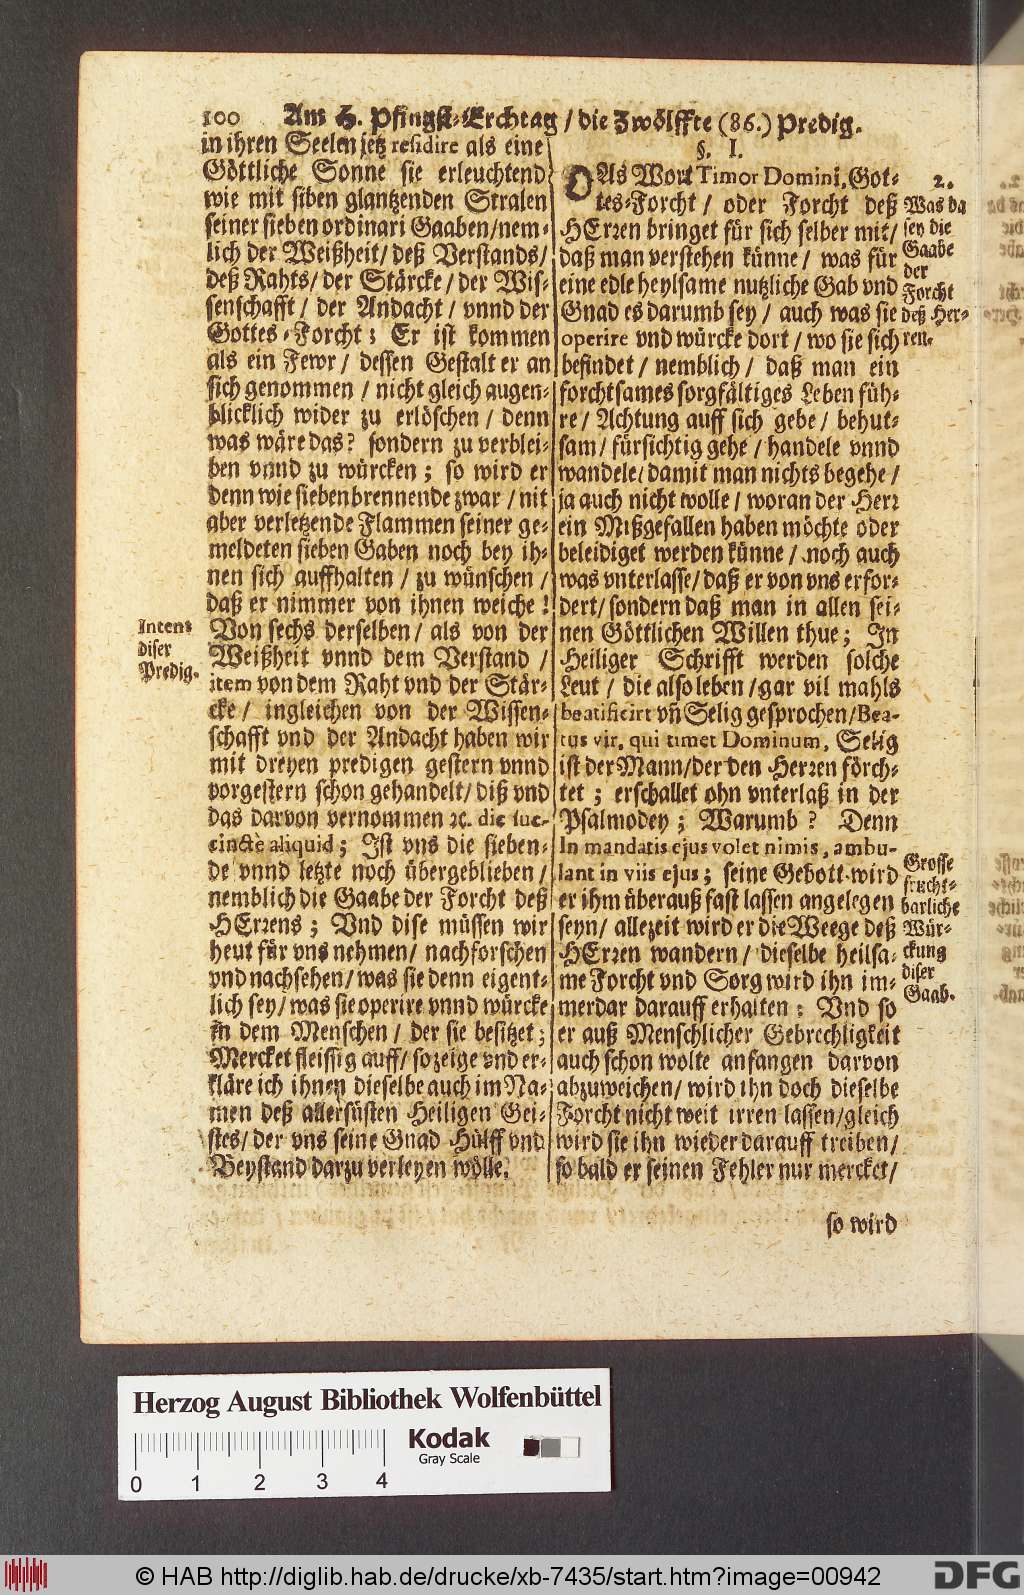 100 Am H. Pfingst-Erchtag / die Zwölffte (86.) Predig.
in ihren Seelen jetz residire als eine
Göttliche Sonne sie erleuchtend
wie mit siben glantzenden Stralen
seiner sieben ordinari Gaaben/nem-
lich der Weißheit/ deß Verstands/
deß Rahts/ der Stärcke/ der Wis-
senschafft / der Andacht/ vnnd der
Gottes-Forcht; Er ist kommen
als ein Fewr / dessen Gestalt er an
sich genommen / nicht gleich augen-
blicklich wider zu erlöschen / denn
was wäre das? sondern zu verblei-
ben vnnd zu würcken; so wird er
denn wie sieben brennende zwar / nit
aber verletzende Flammen seiner ge-
meldeten sieben Gaben noch bey ih-
nen sich auffhalten / zu wünschen /
daß er nimmer von ihnen weiche!
Intent
diser
Predig.
Von sechs derselben/ als von der
Weißheit vnnd dem Verstand /
item von dem Raht vnd der Stär-
cke/ ingleichen von der Wissen-
schafft vnd der Andacht haben wir
mit dreyen predigen gestern vnnd
vorgestern schon gehandelt/ diß vnd
das darvon vernommen ꝛc. die suc-
cinctè aliquid; Ist vns die sieben-
de vnnd letzte noch übergeblieben/
nemblich die Gaabe der Forcht deß
HErꝛens; Vnd dise müssen wir
heut für vns nehmen/ nachforschen
vnd nachsehen/ was sie denn eigent-
lich sey/ was sie operire vnnd würcke
in dem Menschen / der sie besitzet;
Mercket fleissig auff/ so zeige vnd er-
kläre ich ihnen dieselbe auch im Na-
men deß allersüsten Heiligen Gei-
stes/ der vns seine Gnad Hülff vnd
Beystand darzu verleyen wölle.
§. I.
DAs Wort Timor Domini, Got-
tes-Forcht / oder Forcht deß
HErꝛen bringet für sich selber mit/
daß man verstehen künne/ was für
eine edle heylsame nutzliche Gab vnd
Gnad es darumb sey / auch was sie
operire vnd würcke dort / wo sie sich
befindet / nemblich / daß man ein
forchtsames sorgfältiges Leben füh-
re/ Achtung auff sich gebe/ behut-
sam/ fürsichtig gehe / handele vnnd
wandele/ damit man nichts begehe/
ja auch nicht wolle / woran der Herꝛ
ein Mißgefallen haben möchte oder
beleidiget werden künne/ noch auch
was vnterlasse/ daß er von vns erfor-
dert/ sondern daß man in allen sei-
nen Göttlichen Willen thue; In
Heiliger Schrifft werden solche
Leut / die also leben / gar vil mahls
beatificirt vñ Selig gesprochen/Bea-
tus vir, qui timet Dominum, Selig
ist der Mann/ der den Herꝛen förch-
tet; erschallet ohn vnterlaß in der
Psalmodey; Warumb? Denn
In mandatis ejus volet nimis, ambu-
lant in viis ejus; seine Gebott wird
er ihm überauß fast lassen angelegen
seyn/ allezeit wird er die Weege deß
HErꝛen wandern/ dieselbe heilsa-
me Forcht vnd Sorg wird ihn im-
merdar darauff erhalten: Vnd so
er auß Menschlicher Gebrechligkeit
auch schon wolte anfangen darvon
abzuweichen/ wird ihn doch dieselbe
Forcht nicht weit irren lassen/gleich
wird sie ihn wieder darauff treiben/
so bald er seinen Fehler nur mercket/
so wird
2.
Was da
sey die
Gaabe
der
Forcht
deß Her-
ren.
Grosse
frucht-
barliche
Wür-
ckung
diser
Gaab.
Herzog August Bibliothek Wolfenbüttel
Kodak
Gray Scale
0 1 2 3 4
© HAB http://diglib.hab.de/drucke/xb-7435/start.htm?image=00942
DFG